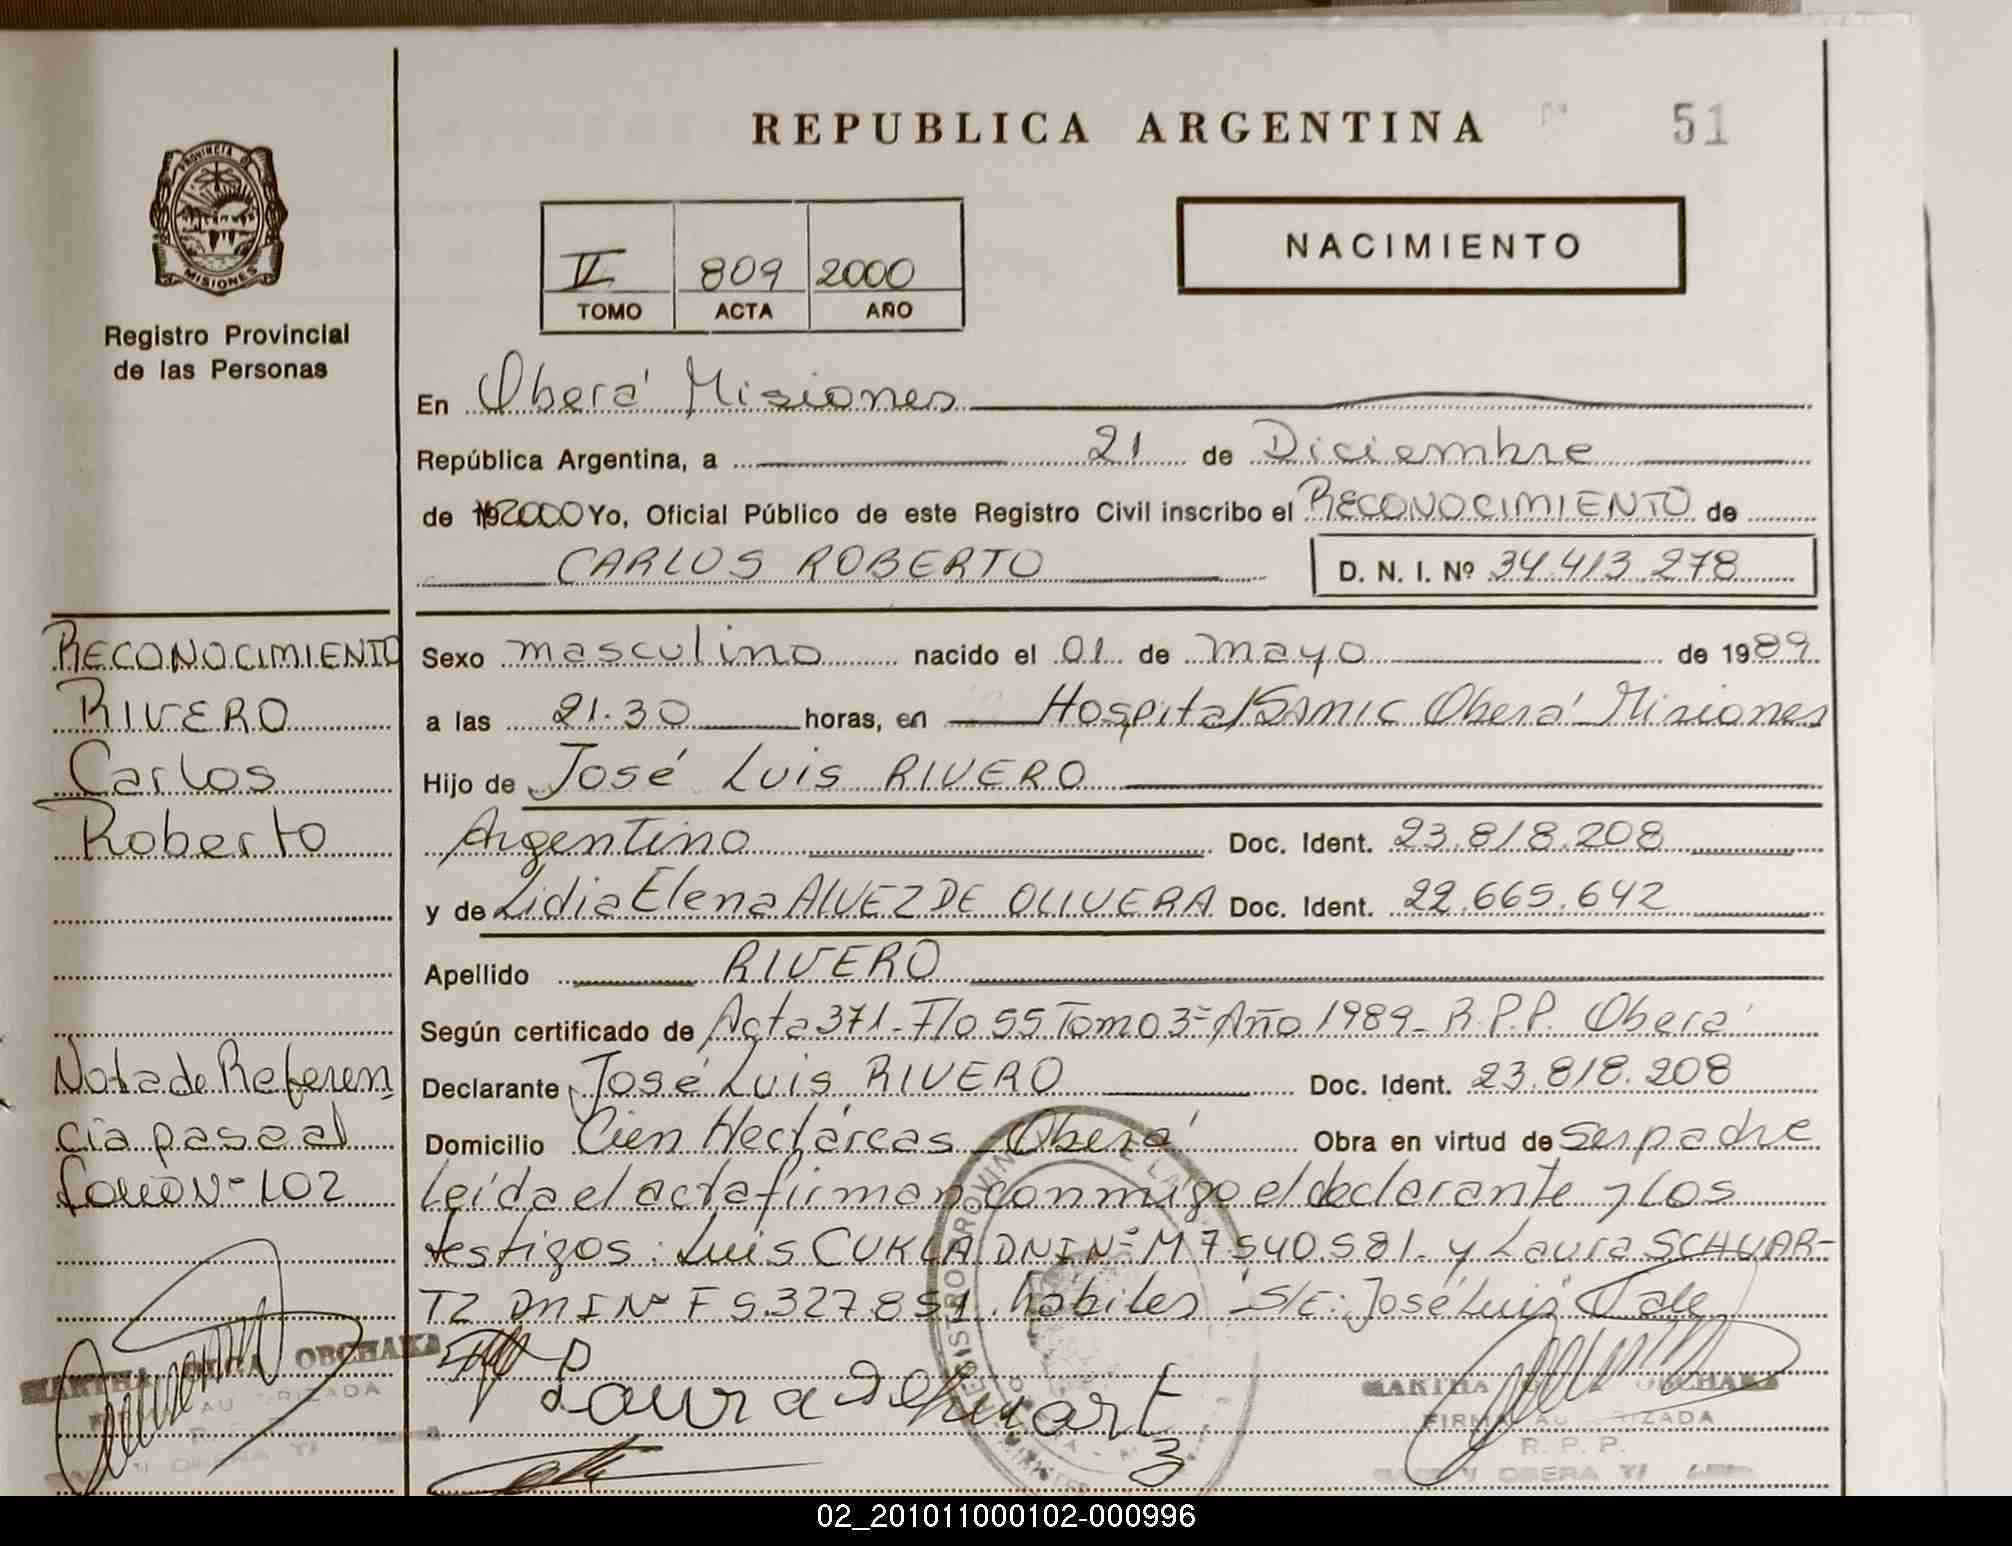 REPUBLICA ARGENTINA
51
PROVINCIA D
MISIONES
Registro Provincial
de las Personas
809 2000
TOMO ACTA AÑO
NACIMIENTO
En Oberá Misiones
República Argentina, a 21 de Diciembre
de 2000 Yo, Oficial Público de este Registro Civil inscribo el RECONOCIMIENTO de
CARLOS ROBERTO D. N. I. Nº 34.413.278
Sexo masculino nacido el 01 de mayo de 1989
a las 21.30 horas, en Hospital SAMIC Oberá Misiones
Hijo de José Luis RIVERO
Argentino Doc. Ident. 23.818.208
y de Lidia Elena ALVEZ DE OLIVERA Doc. Ident. 22.665.642
Apellido RIVERO
Según certificado de Acta 371-Flo 55 Tomo 3º Año 1989- R.P.P. Oberá
Declarante José Luis RIVERO Doc. Ident. 23.818.208
Domicilio Cien Hectáreas Oberá Obra en virtud de ser padre
Leída el acta firman conmigo el declarante y los
testigos: Luis CUKLA DNI Nº M 7.540.581- y Laura SCHUAR-
TZ DNI Nº F 5.327.851 habiles S/E: "José Luis" Vale
Laura Schuart
3
RECONOCIMIENTO
RIVERO
Carlos
Roberto
Nota de Referen
cia pasa al
folio Nº 102
MARTHA OLGA OBCHAKA
R. P. P.
OBERA
MARTHA OBCHAKA
FIRMA AUTORIZADA
R. P. P.
OBERA
02_201011000102-000996